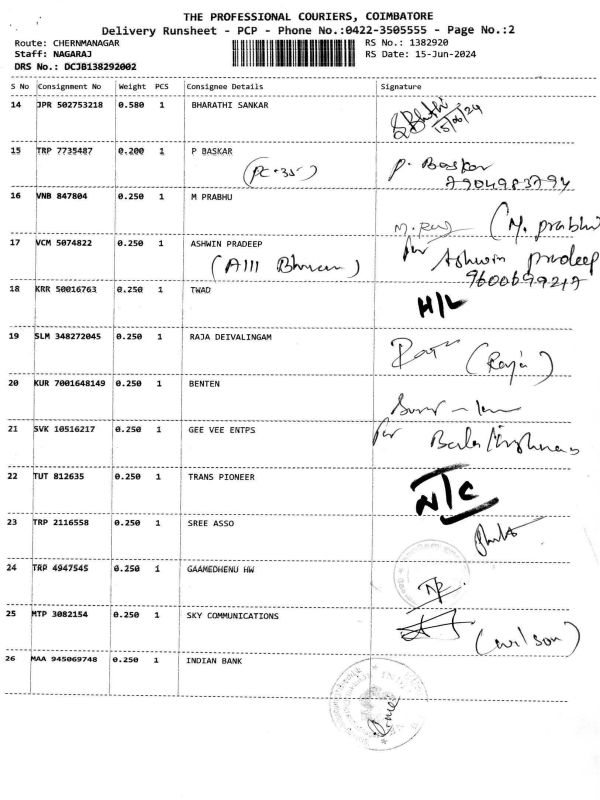 THE PROFESSIONAL COURIERS, COIMBATORE
Delivery Runsheet - PCP - Phone No.:0422-3505555 - Page No.:2
Route: CHERNMANAGAR RS No.: 1382920
Staff: NAGARAJ RS Date: 15-Jun-2024
DRS No.: DCJB138292002
S No Consignment No Weight PCS Consignee Details Signature
14 JPR 502753218 0.580 1 BHARATHI SANKAR
15/06/24
15 TRP 7735487 0.200 1 P BASKAR P. Baskar
(PC-35) 7904983794
16 VNB 847804 0.250 1 M PRABHU
(M. prabhu
17 VCM 5074822 0.250 1 ASHWIN PRADEEP for Ashwin pradeep
9600699217
18 KRR 50016763 0.250 1 TWAD
H/L
19 SLM 348272045 0.250 1 RAJA DEIVALINGAM
(Raja)
20 KUR 7001648149 0.250 1 BENTEN
21 SVK 10516217 0.250 1 GEE VEE ENTPS for
22 TUT 812635 0.250 1 TRANS PIONEER
N/C
23 TRP 2116558 0.250 1 SREE ASSO
24 TRP 4947545 0.250 1 GAAMEDHENU HW
25 MTP 3082154 0.250 1 SKY COMMUNICATIONS
(wilson)
26 MAA 945069748 0.250 1 INDIAN BANK